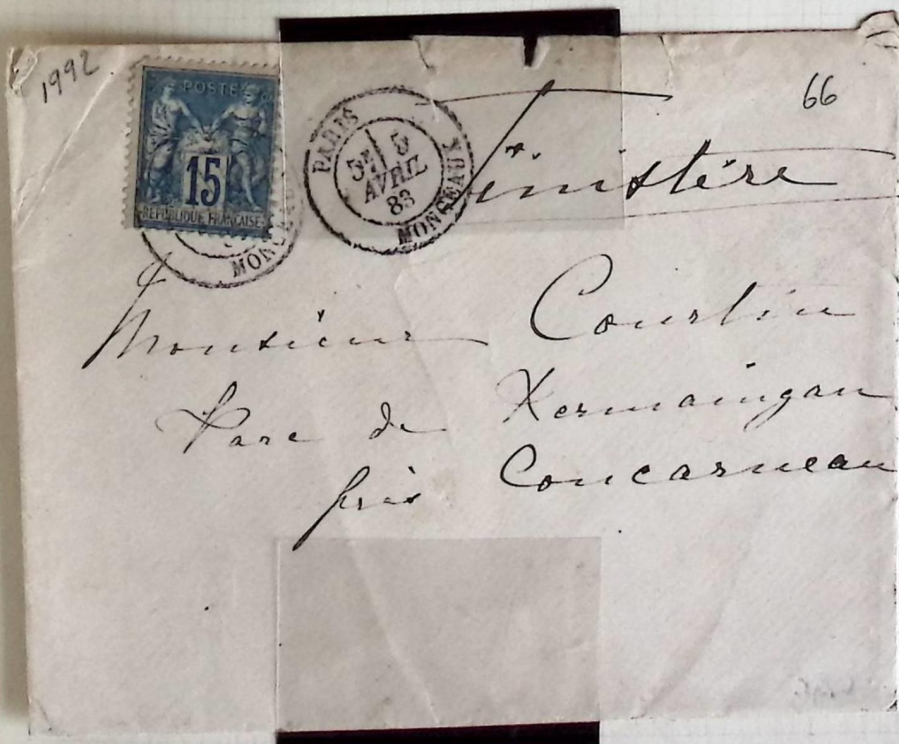 1992
66
POSTES
15
REPUBLIQUE FRANÇAISE
PARIS
5E 5
AVRIL
83
MONCEAUX
MONC
Finistère
Monsieur Courtin
Parc de Kermaingan
près Concarneau